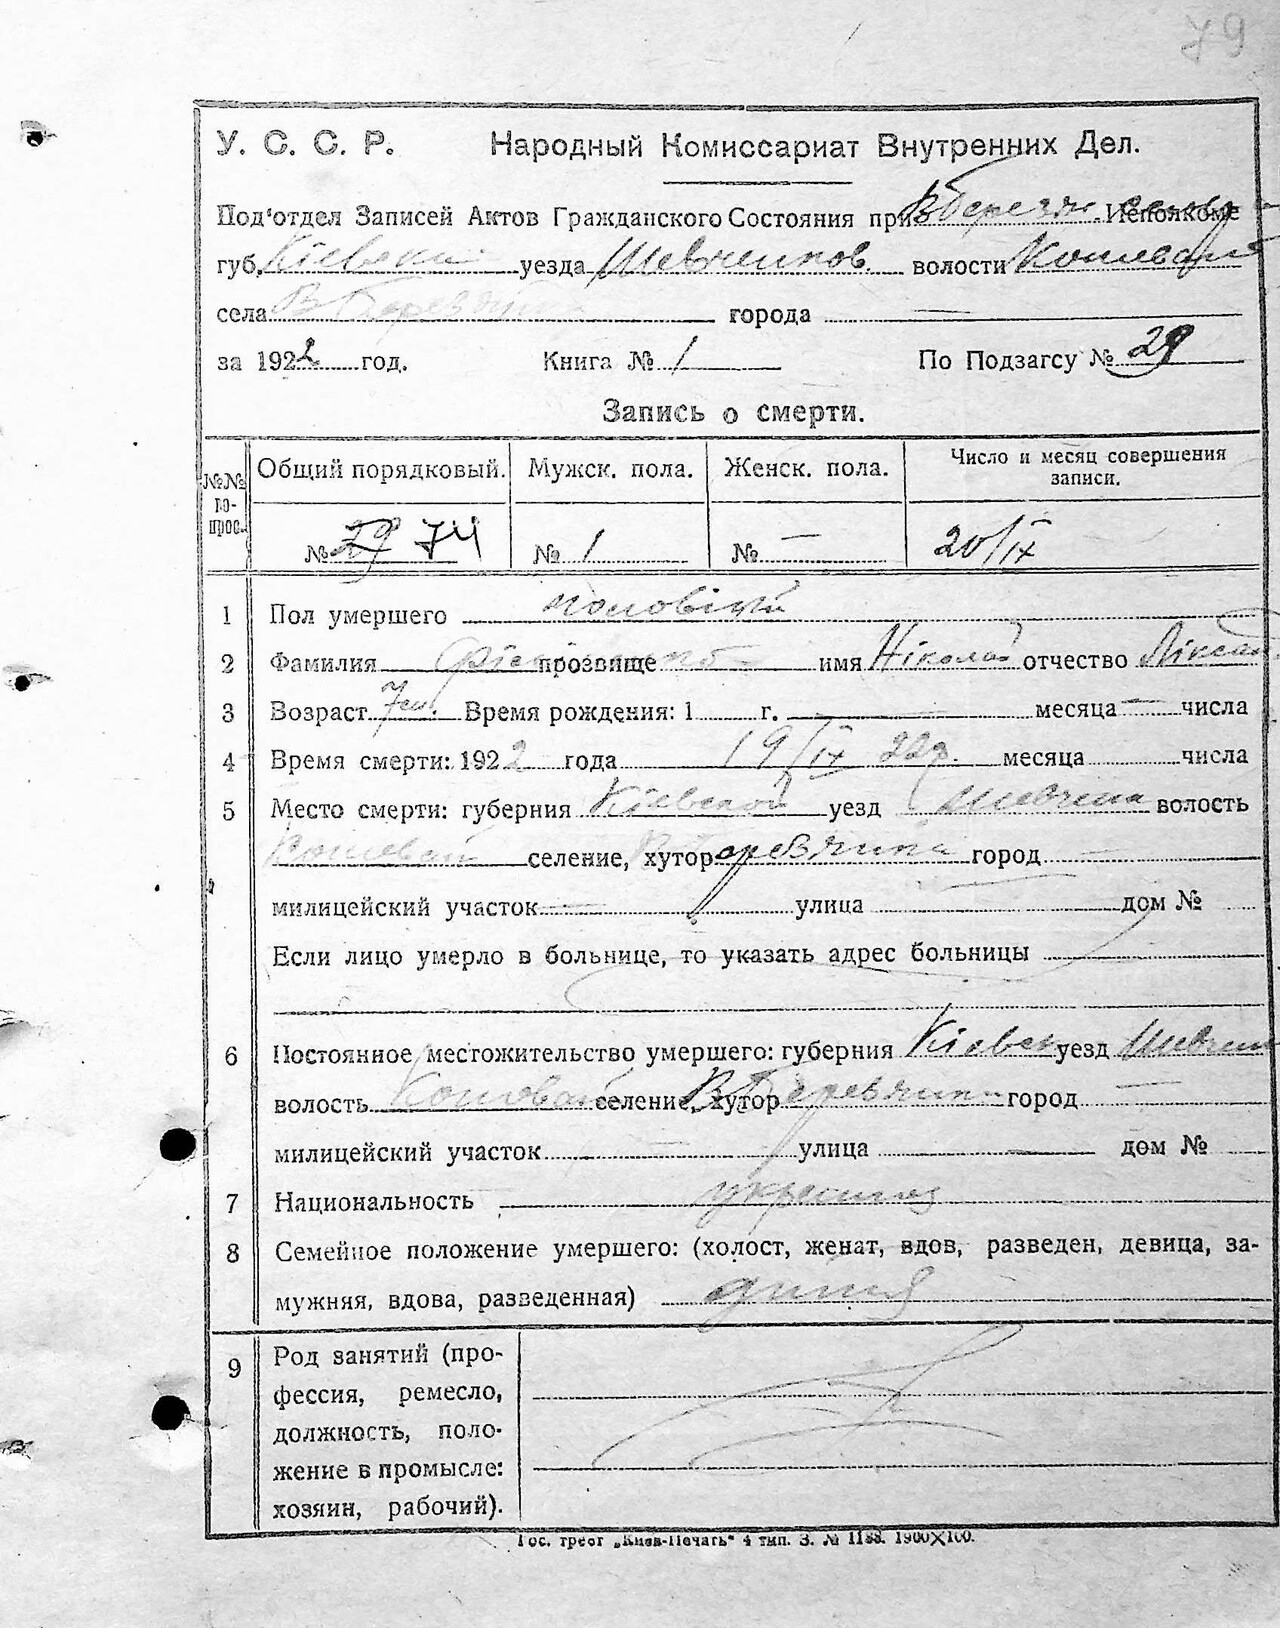 79
У. С. С. Р. Народный Комиссариат Внутренних Дел.
Под'отдел Записей Актов Гражданского Состояния при Исполкоме
губ. Кіевск уезда Шевченков волости Кошевай
села В Березянк города —
за 1922 год. Книга № 1 По Подзагсу № 29
Запись о смерти.
№№ во-прос. Общий порядковый. Мужск. пола. Женск. пола. Число и месяц совершения записи.
№ 29 74 № 1 № — 20/IX
1 Пол умершего
2 Фамилия прозвище имя Ніколай отчество
3 Возраст Время рождения: 1 г. — месяца — числа
4 Время смерти: 1922 года 19/IX 22г. месяца числа
5 Место смерти: губерния Кіевской уезд Шевченк волость
Кошевай селение, хутор город —
милицейский участок — улица — дом №
Если лицо умерло в больнице, то указать адрес больницы
6 Постоянное местожительство умершего: губерния Кіевск уезд Шевченк
волость Кошевай селение, хутор город —
милицейский участок — улица — дом №
7 Национальность
8 Семейное положение умершего: (холост, женат, вдов, разведен, девица, за-
мужняя, вдова, разведенная) дитя
9 Род занятий (про-
фессия, ремесло,
должность, поло-
жение в промысле:
хозяин, рабочий).
Гос. трест „Киев-Печать" 4 тип. З. № 1188. 1900X100.